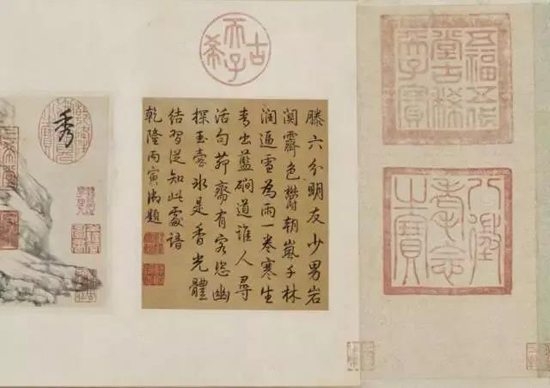 五福五代
堂古稀
天子寶
八徵
耄念
之寶
古
希
天子
滕六分明友少男岩
關霽色鬱朝嵐千林
潤逼雪為雨一卷寒生
青出藍磵道誰人尋
活句茆齋有客恣幽
探玉壺冰是香光體
結習從知此處諳
乾隆丙寅御題
秀